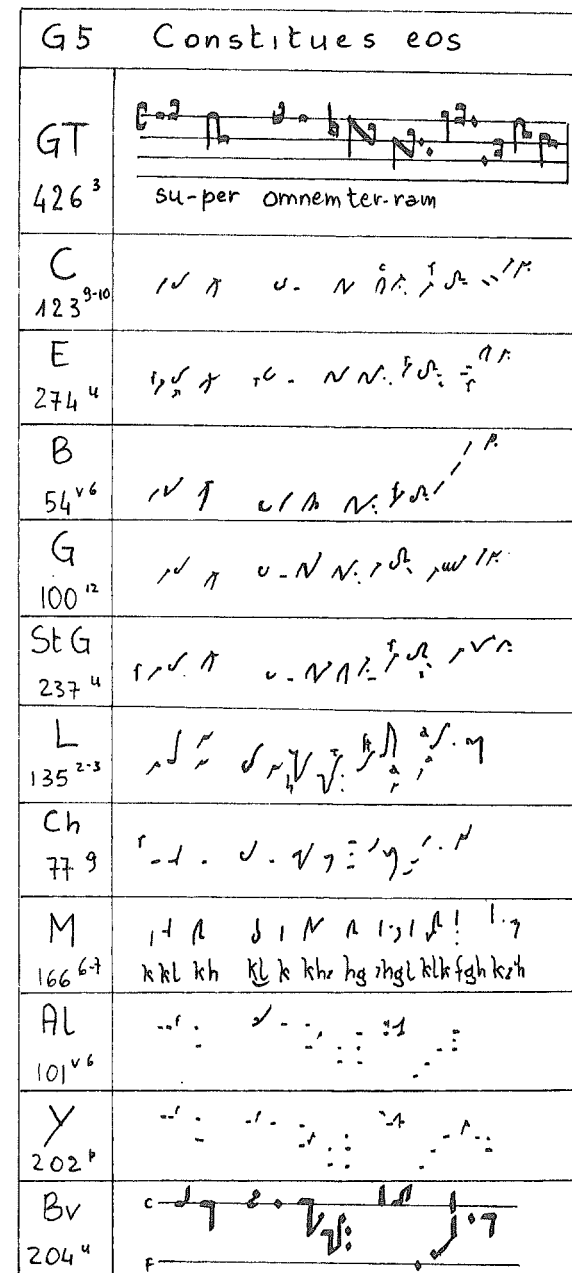 G5 Constitues eos
GT
426³
su-per omnem ter-ram
C
123⁹⁻¹⁰
E
274⁴
B
54ᵛ⁶
G
100¹²
St G
237⁴
L
135²⁻³
Ch
77⁹
M
166⁶⁻⁷
k kl kh kl k
Al
101ᵛ⁶
Y
202
Bv
204⁴
C
F